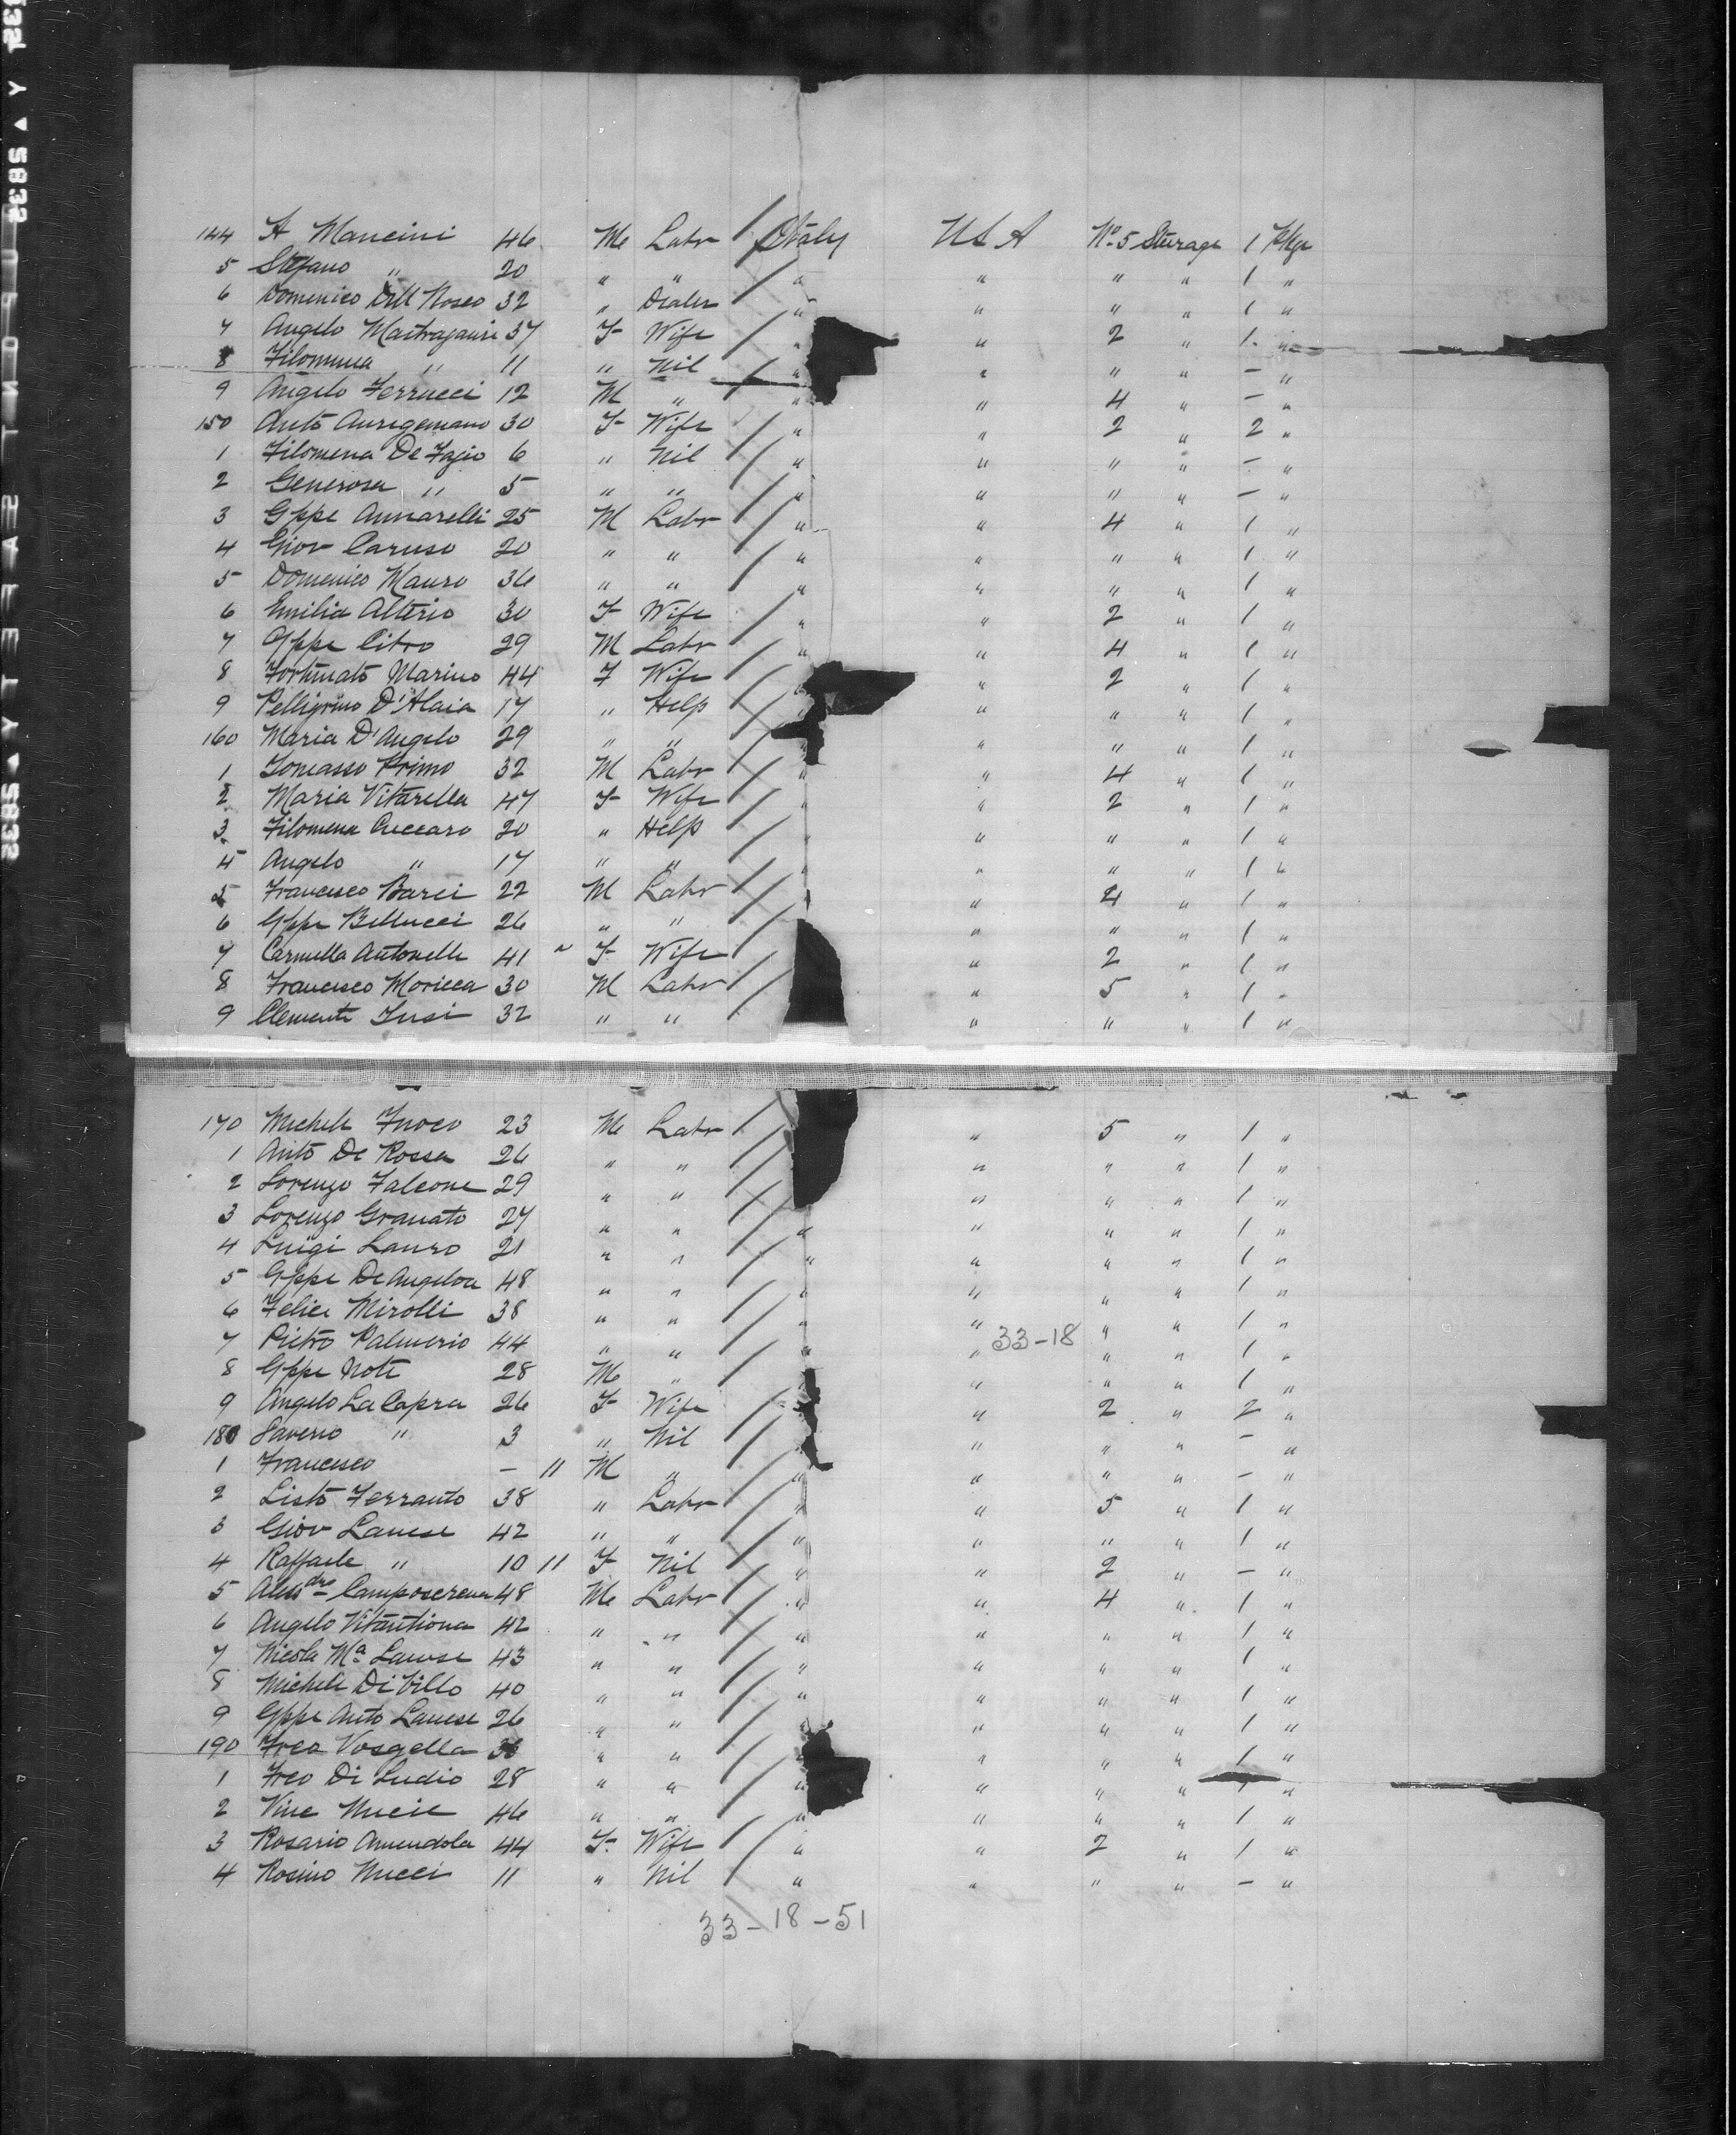 144 A Mancini 46 M Labr / Italy U S A No 5 Sterage 1 Pkge
5 Stefano " 20 " " / " " " " 1 "
6 Domenico Dell Rosco 32 " Dealer / " " " " 1 "
7 Angelo 37 F Wife / " " 2 " 1 "
8 Filomena " 11 " Nil / " " " " - "
9 Angelo Ferrucci 12 M " / " " 4 " - "
150 Anto 30 F Wife / " " 2 " 2 "
1 Filomena De Fazio 6 " Nil / " " " " - "
2 Generosa " 5 " " / " " " " - "
3 Gppe Annarelli 25 M Labr / " " 4 " 1 "
4 Giov Caruso 20 " " / " " " " 1 "
5 Domenico Mauro 36 " " / " " " " 1 "
6 Emilia Alterio 30 F Wife / " " 2 " 1 "
7 Gppe Citro 29 M Labr / " " 4 " 1 "
8 Fortunato Marino 44 F Wife / " " 2 " 1 "
9 Pelligrino D'Alaia 17 " Help / " " " " 1 "
160 Maria D'Angelo 29 " " / " " " 1 "
1 Tomasso Primo 32 M Labr / " " 4 " 1 "
2 Maria Vitarella 47 F Wife / " " 2 " 1 "
3 Filomena Cuccaro 20 " Help / " " " " 1 "
4 Angelo " 17 " " / " " " " 1 "
5 Francesco Barci 22 M Labr / " " 4 " 1 "
6 Gppe Bellucci 26 " " / " " " 1 "
7 Carmella Antonelli 41 " F Wife / " 2 " 1 "
8 Francesco Moricca 30 M Labr / " 5 " 1 "
9 Clemente Iusi 32 " " / " " " 1 "
170 Michele Fuoco 23 M Labr / " 5 " 1 "
1 Anto De Rossa 26 " " / " " " 1 "
2 Lorenzo Falcone 29 " " / " " " 1 "
3 Lorenzo Granato 27 " " / " " " " 1 "
4 Luigi Lauro 21 " " / " " " " 1 "
5 Gppe De Angelon 48 " " / " " " " 1 "
6 Felice Mirolli 38 " " / " " " " 1 "
7 Pietro Palmerio 44 " " / " " 33-18 " " 1 "
8 Gppe Note 28 M " / " " " " 1 "
9 Angelo La Capra 26 F Wife / " 2 " 2 "
180 Saverio " 3 " Nil / " " " " - "
1 Francesco - 11 M " / " " " " - "
2 Listo Ferranto 38 " Labr / " " 5 " 1 "
3 Giov Lanese 42 " " / " " " " 1 "
4 Raffaele " 10 11 F Nil / " " 2 " - "
5 Alessdro 48 M Labr / " " 4 " 1 "
6 Angelo 42 " " / " " " " 1 "
7 Nicola Ma Lanese 43 " " / " " " " 1 "
8 Michele Di Villo 40 " " / " " " " 1 "
9 Gppe Anto Lanese 26 " " / " " " " 1 "
190 Frco Vosgella " " / " " " 1 "
1 Frco Di Ludio 28 " " / " " " " 1 "
2 Vinc 46 " " / " " " " 1 "
3 Rosario Amendola 44 F Wife / " " 2 " 1 "
4 Rosino Nucci 11 " Nil / " " " " - "
33-18-51